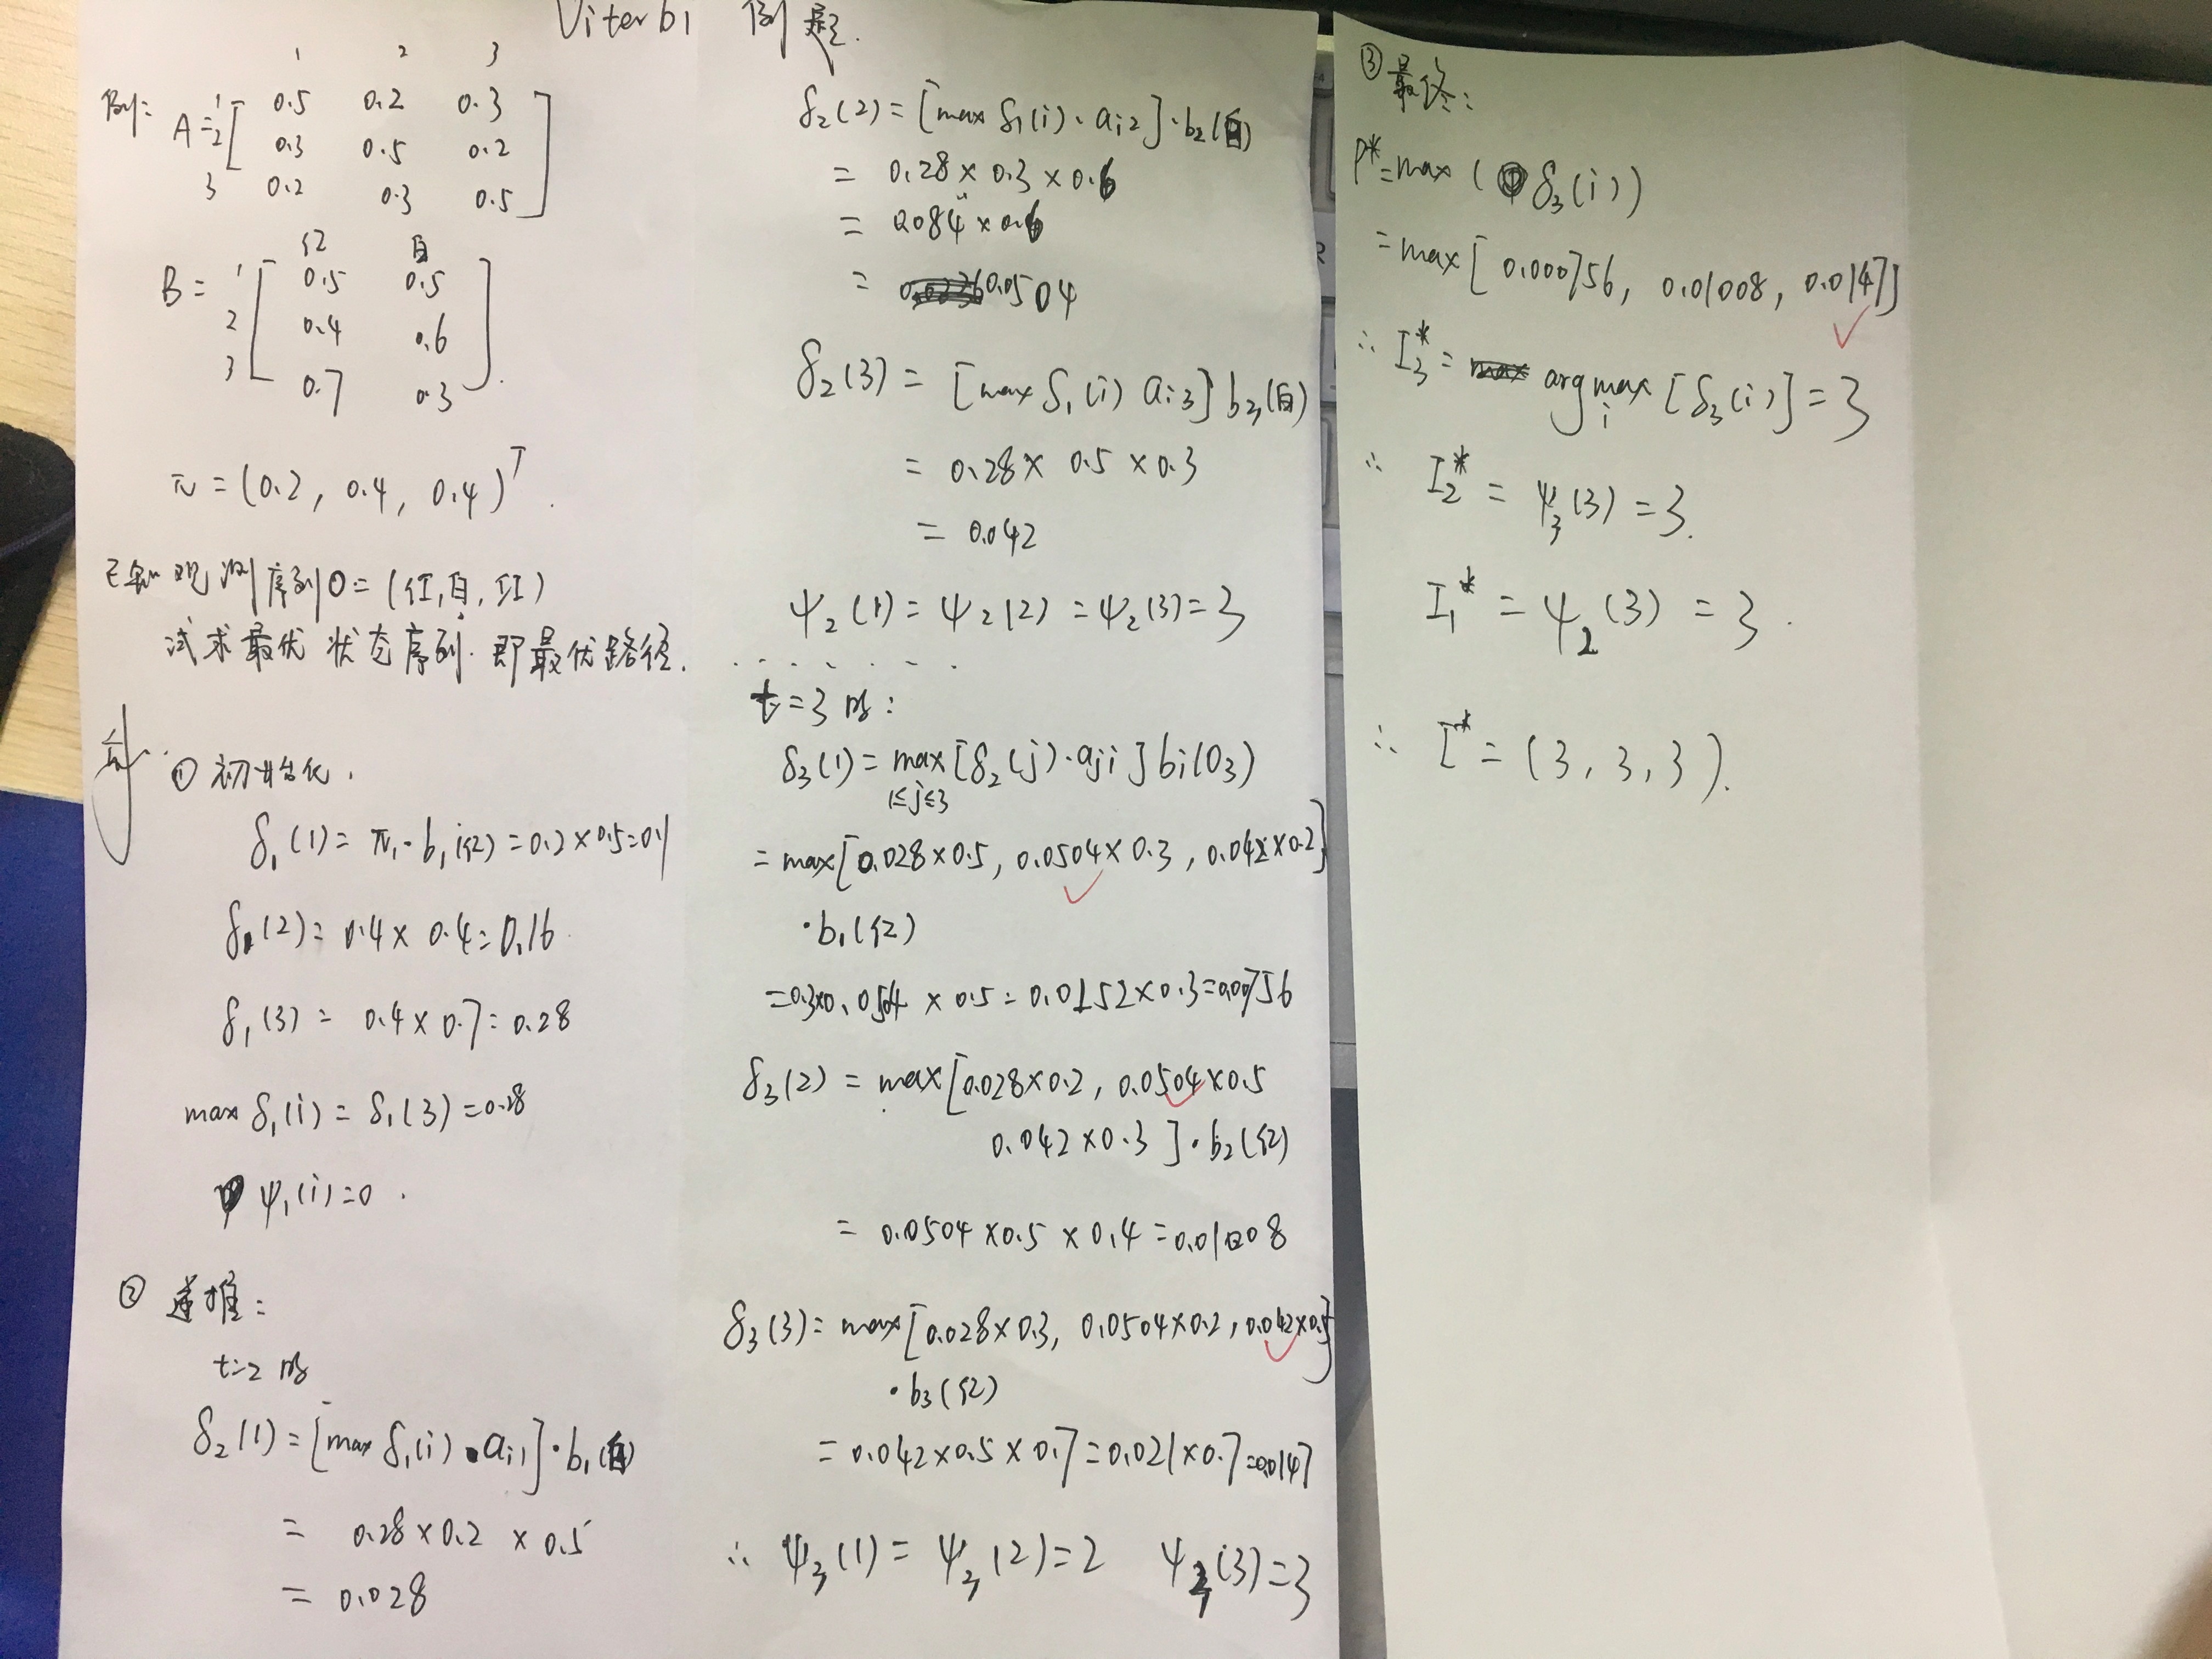 Viterbi 例题.
1 2 3
例: A = 1 [ 0.5 0.2 0.3
2 0.3 0.5 0.2
3 0.2 0.3 0.5 ]
红 白
B = 1 [ 0.5 0.5
2 0.4 0.6
3 0.7 0.3 ].
π = (0.2, 0.4, 0.4)^T.
已知观测序列O = (红,白,红)
试求最优状态序列.即最优路径.
① 初始化.
δ₁(1) = π₁·b₁(红) = 0.2×0.5=0.1
δ₁(2) = 0.4× 0.4 = 0.16
δ₁(3) = 0.4 × 0.7 = 0.28
max δ₁(i) = δ₁(3) = 0.28
ψ₁(i)=0.
② 递推:
t=2 时
δ₂(1) = [max δ₁(i)·aᵢ₁]·b₁(白)
= 0.28×0.2 × 0.5
= 0.028
δ₂(2) = [max δ₁(i)·aᵢ₂]·b₂(白)
= 0.28 × 0.3 × 0.6
= 0.084 × 0.6
= 0.0504
δ₂(3) = [max δ₁(i) aᵢ₃] b₃(白)
= 0.28× 0.5 × 0.3
= 0.042
ψ₂(1) = ψ₂(2) = ψ₂(3) = 3
. . . . . . .
t=3 时:
δ₃(1) = max [δ₂(j)·aji] bi(O₃)
1≤j≤3
= max[0.028×0.5, 0.0504×0.3, 0.042×0.2]
·b₁(红)
=0.3×0.0504 × 0.5 = 0.0152×0.3=0.00756
δ₃(2) = max[0.028×0.2, 0.0504×0.5
0.042×0.3 ]·b₂(红)
= 0.0504×0.5 × 0.4 = 0.01008
δ₃(3) = max[0.028×0.3, 0.0504×0.2, 0.042×0.5]
·b₃(红)
= 0.042×0.5 × 0.7 = 0.021×0.7=0.0147
∴ ψ₃(1) = ψ₃(2) = 2 ψ₃(3) = 3
③ 最终:
P* = max ( δ₃(i))
= max[ 0.000756, 0.01008, 0.0147]
∴ I₃* = argmax [δ₃(i)] = 3
i
∴ I₂* = ψ₃(3) = 3.
I₁* = ψ₂(3) = 3.
∴ I* = (3, 3, 3).